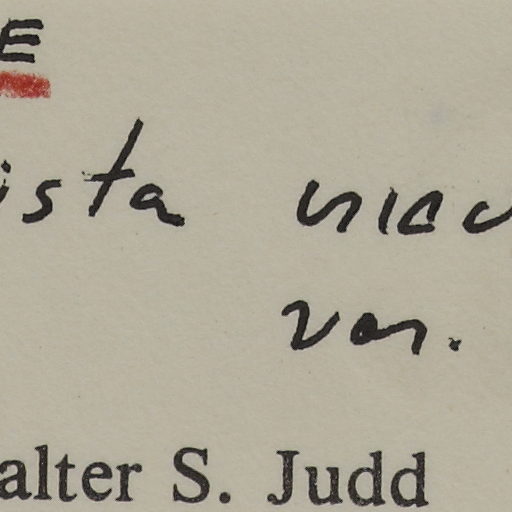 E
ista
var.
alter S. Judd